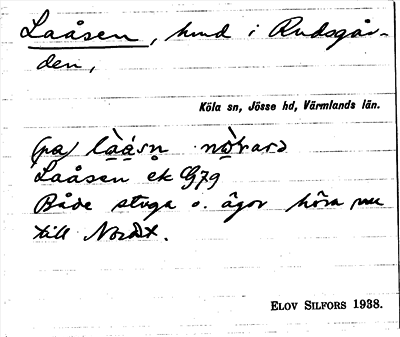 Laåsen, hmd i Rudsgår-
den,
Köla sn, Jösse hd, Värmlands län.
(pa) lààsn
Laåsen åk G79
Både stuga o. ägor höra nu
till
ELOV SILFORS 1938.